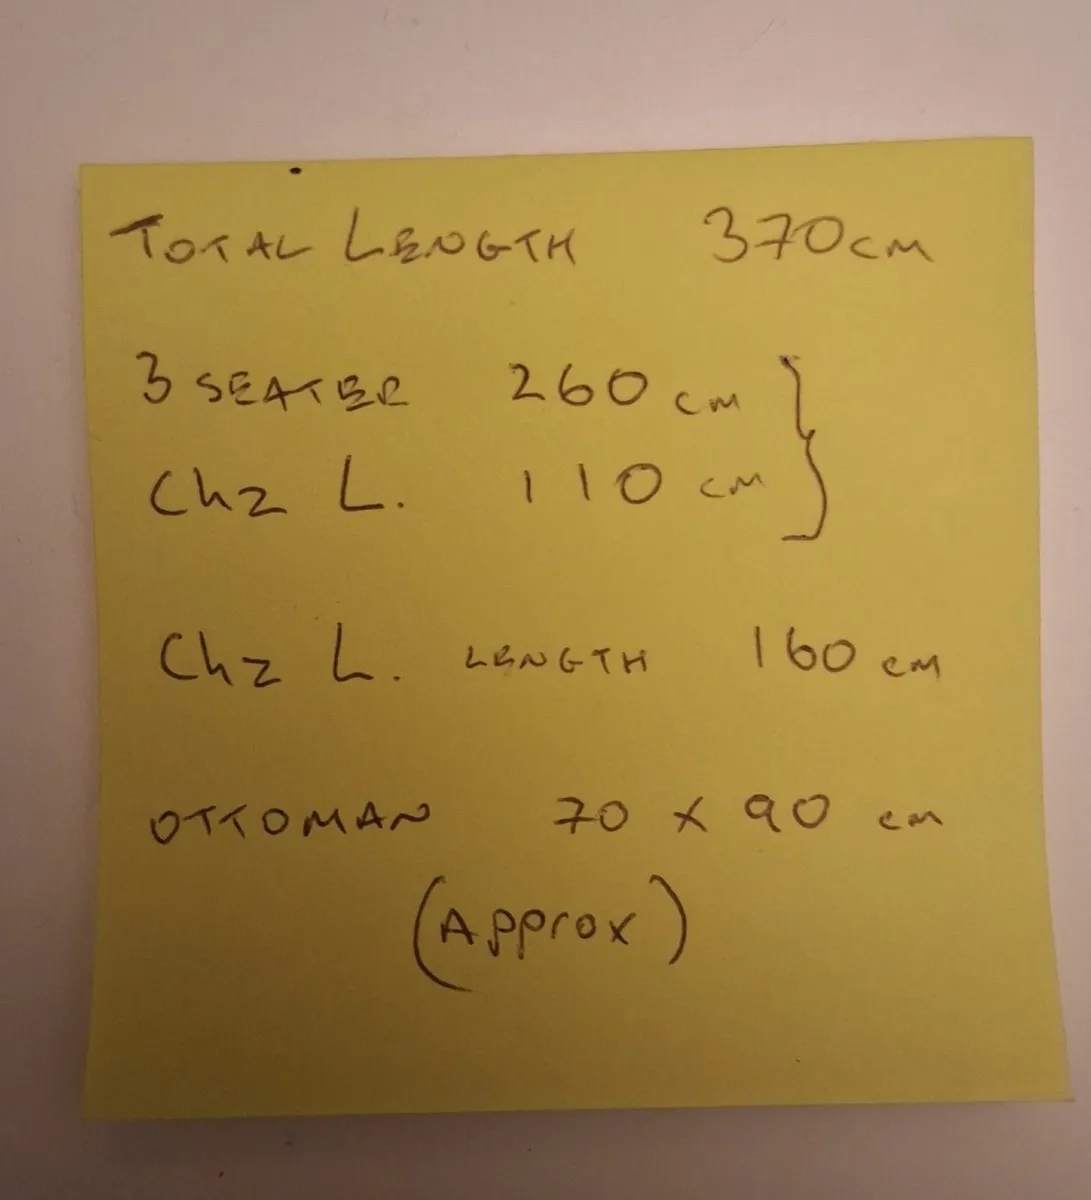 TOTAL LENGTH 370cm
3 SEATER 260 cm
Chz L. 110 cm
Chz L. LENGTH 160 cm
OTTOMAN 70 x 90 cm
(Approx)